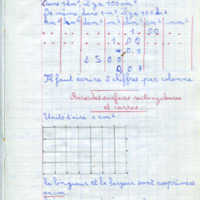 Dans 1dm² il y a 100 cm²
De même dans 1m² il y a 100 dm²
km² hm² dam² m² dm² cm² mm²
1 00
1 00
4 00
2 5 0 0
0 0 7
Il faut écrire 2 chiffres par colonne
Aires des surfaces rectangulaires
et carrés
Unité d'aire = cm²
La longueur et la largeur sont exprimées
en cm